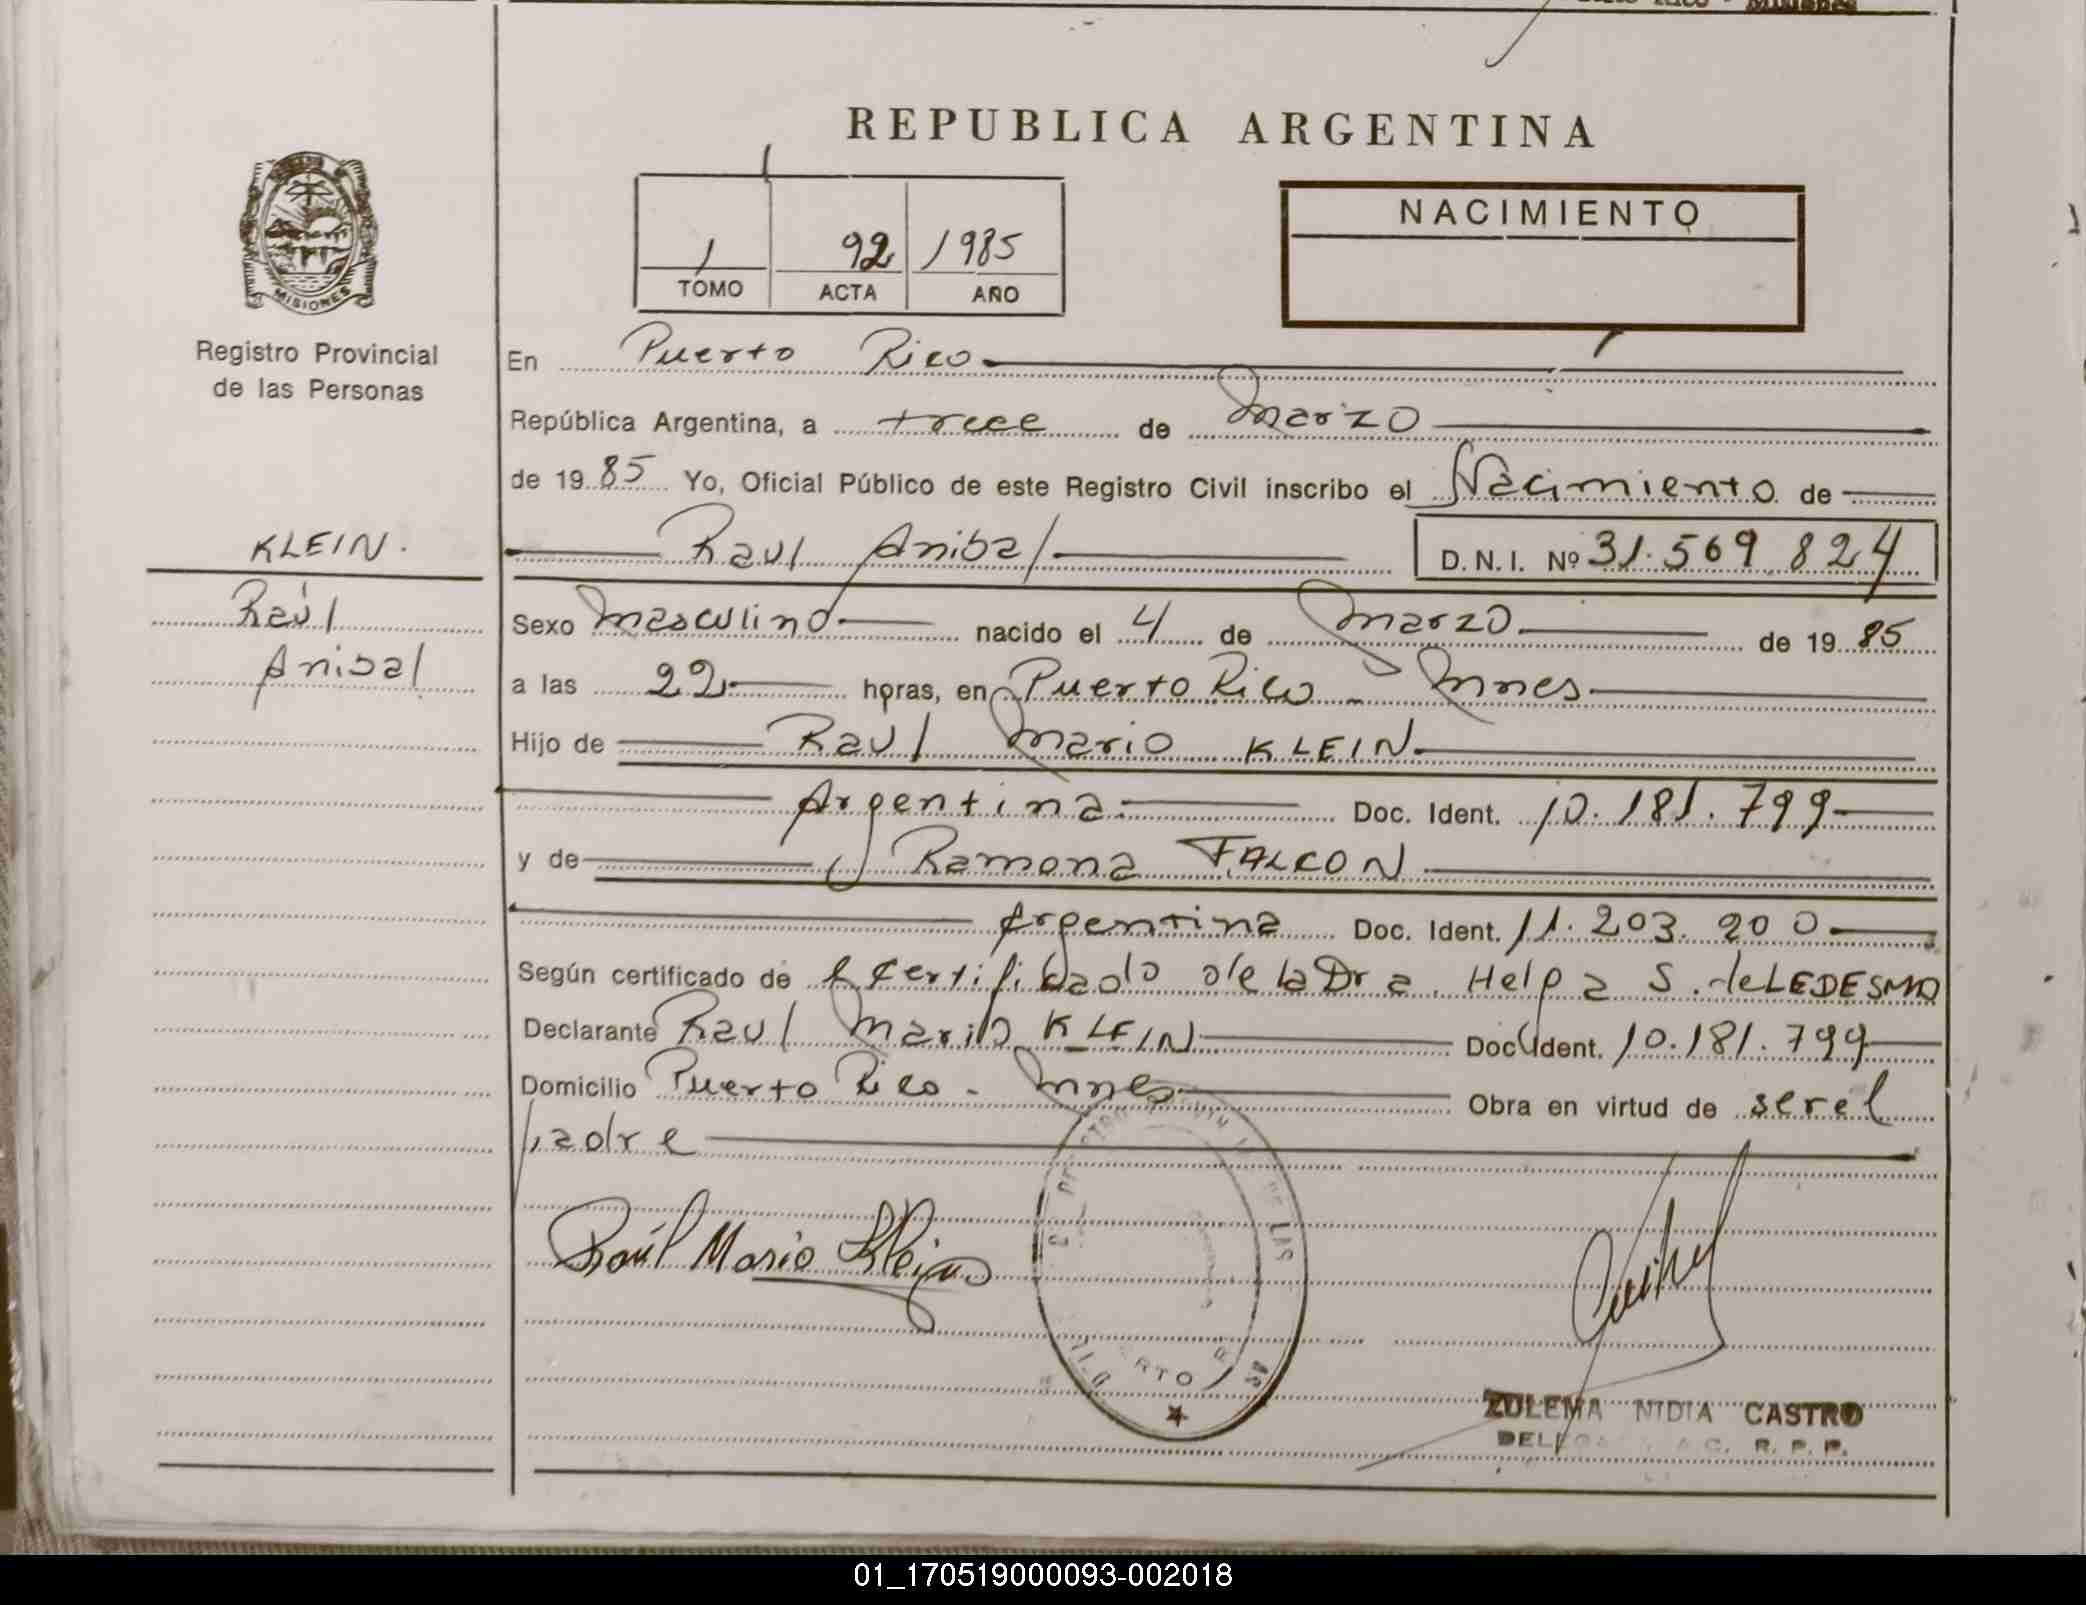 REPUBLICA ARGENTINA
MISIONES
Registro Provincial
de las Personas
1 92 1985
TOMO ACTA AÑO
NACIMIENTO
En Puerto Rico
República Argentina, a trece de Marzo
de 19 85 Yo, Oficial Público de este Registro Civil inscribo el Nacimiento de
KLEIN.
Raúl
Anibal
Raul Anibal D.N.I. Nº 31.569.824
Sexo Masculino nacido el 4 de Marzo de 19 85
a las 22 horas, en Puerto Rico - Mnes
Hijo de Raul Mario KLEIN
Argentina Doc. Ident. 10.181.799
y de Ramona FALCON
Argentina Doc. Ident. 11.203.200
Según certificado de Certificado de la Dra. Helga S. de LEDESMA
Declarante Raul Mario KLEIN Doc. Ident. 10.181.799
Domicilio Puerto Rico - Mnes Obra en virtud de ser el
padre
Raúl Mario Klein
ZULEMA NIDIA CASTRO
R. P. P.
01_170519000093-002018